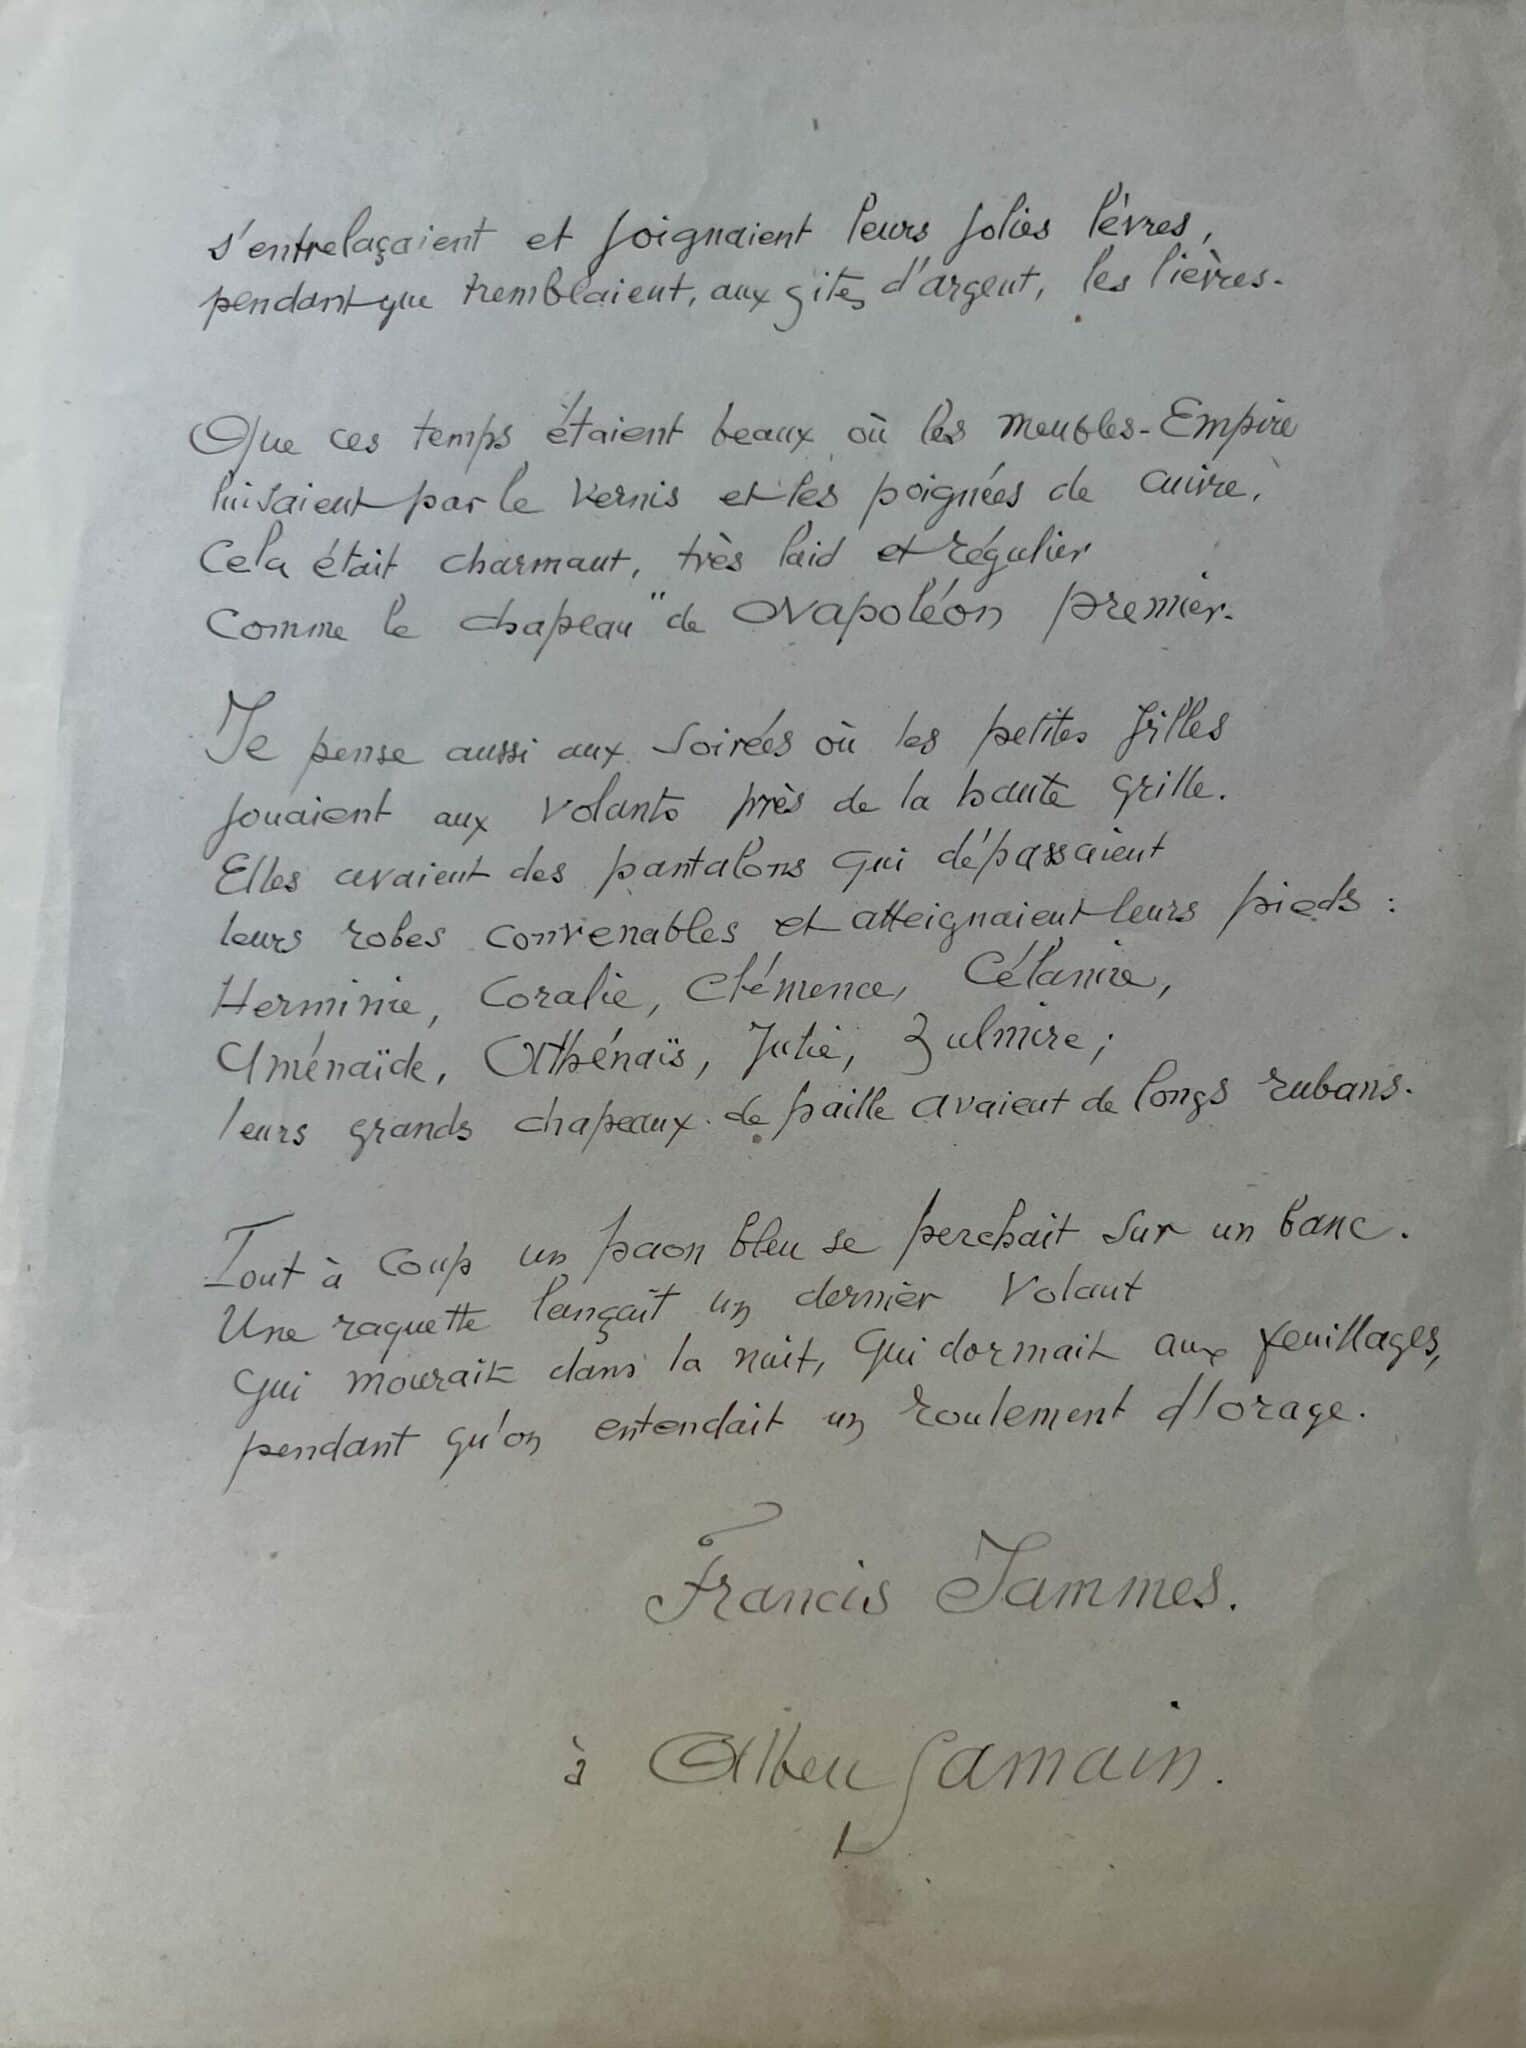 s'entrelaçaient et joignaient leurs jolies lèvres,
pendant que tremblaient, aux gites d'argent, les lièvres.
Que ces temps étaient beaux où les meubles-Empire
luisaient par le vernis et les poignées de cuivre.
Cela était charmant, très laid et régulier
Comme le chapeau de Napoléon premier.
Je pense aussi aux soirées où les petites filles
jouaient aux volants près de la haute grille.
Elles avaient des pantalons qui dépassaient
leurs robes convenables et atteignaient leurs pieds :
Herminie, Coralie, Clémence, Célanire,
Aménaïde, Athénaïs, Julie, Zulmire;
leurs grands chapeaux de paille avaient de longs rubans.
Tout à coup un paon bleu se perchait sur un banc.
Une raquette lançait un dernier volant
qui mourait dans la nuit, qui dormait aux feuillages,
pendant qu'on entendait un roulement d'orage.
Francis Jammes.
à Albert Samain.